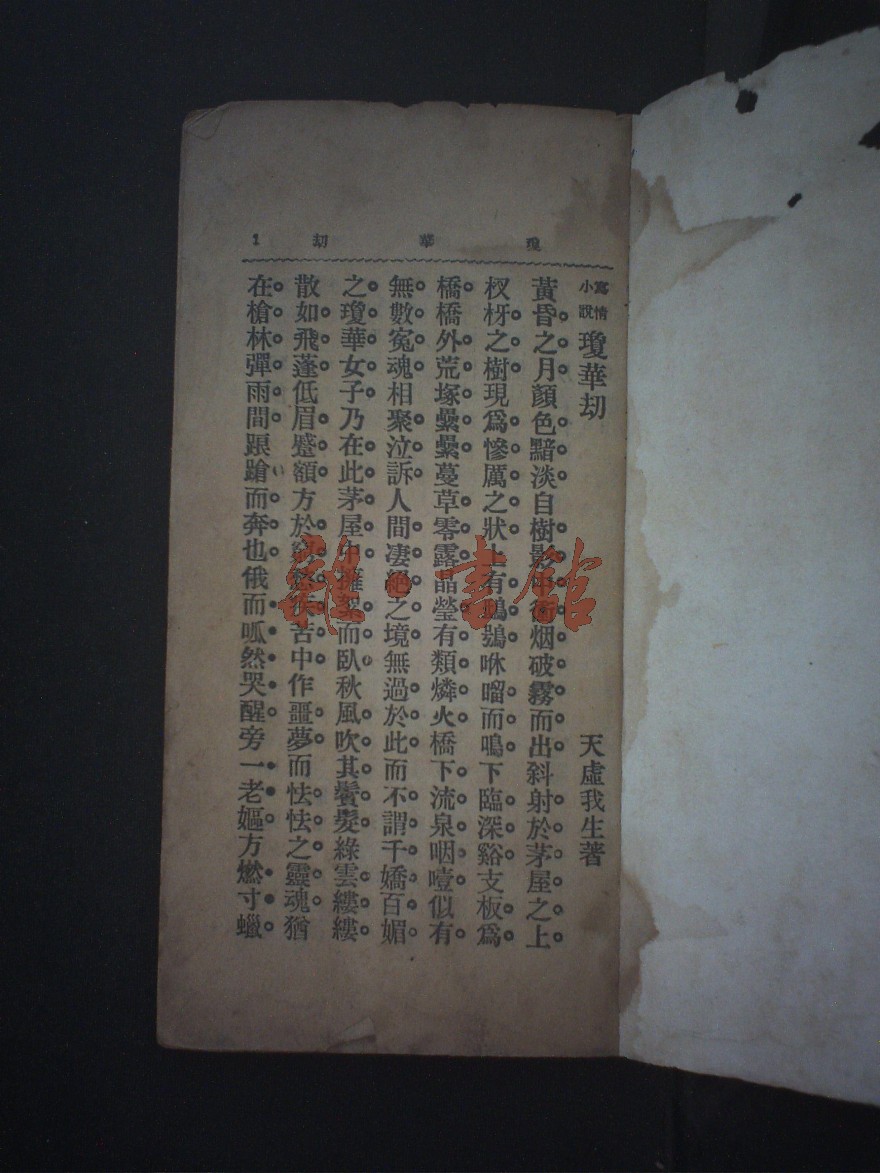 瓊華劫 1
寫情小說 瓊華劫 天虛我生著
黃昏之月顏色黯淡自樹影中衝烟破霧而出斜射於茅屋之上
杈枒之樹現爲慘厲之狀上有鵂鶹咻㗜而鳴下臨深谿支板爲
橋橋外荒塚纍纍蔓草零露晶瑩有類燐火橋下流泉咽噎似有
無數寃魂相聚泣訴人間凄絕之境無過於此而不謂千嬌百媚
之瓊華女子乃在此茅屋中擁絮而臥秋風吹其鬢髮綠雲縷縷
散如飛蓬低眉蹙額方於窮愁疾苦中作噩夢而怯怯之靈魂猶
在槍林彈雨間踉蹌而奔也俄而呱然哭醒旁一老嫗方燃寸蠟
雜·書館